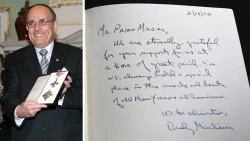 2/13/02
Mr. Prime Minister,
We are eternally grateful
for your support for us at
a time of great peril in
U.S. always hold a special
place in the minds and hearts
of all New Yorkers and Americans.
With admiration,
Rudy Giuliani